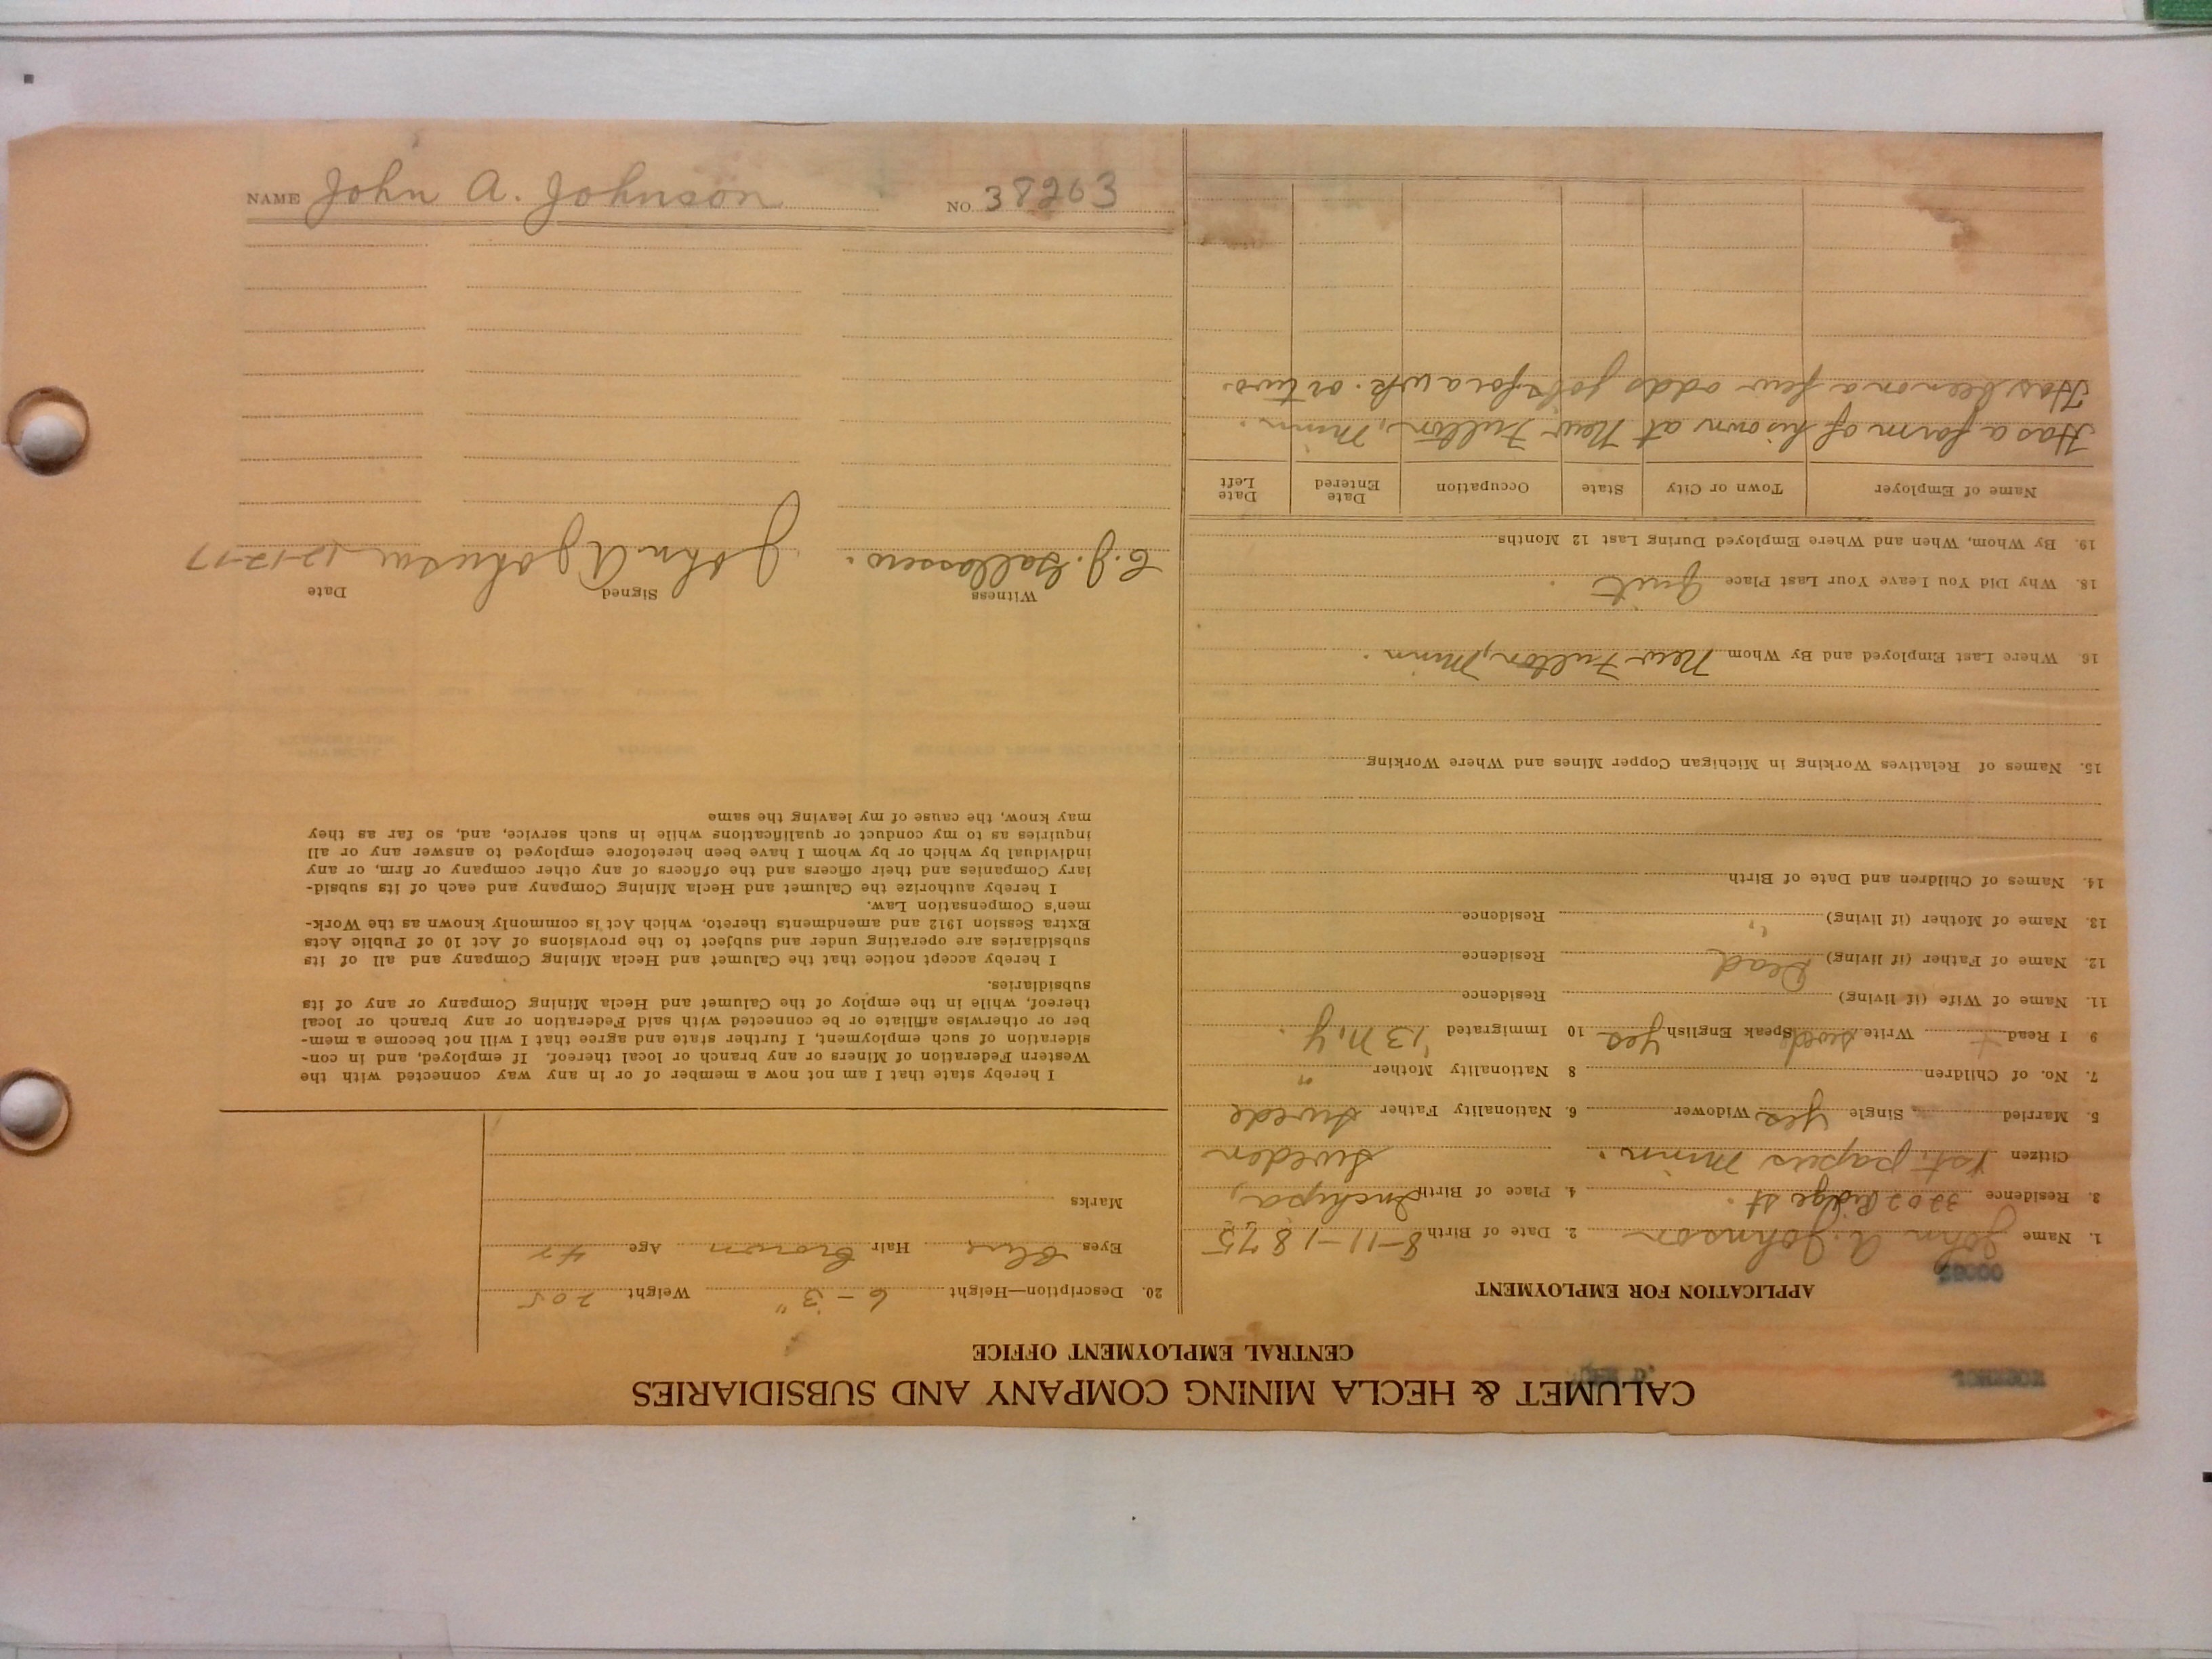 CALUMET & HECLA MINING COMPANY AND SUBSIDIARIES
CENTRAL EMPLOYMENT OFFICE
APPLICATION FOR EMPLOYMENT
1. Name John A. Johnson 2. Date of Birth 8-11-1875
3. Residence 3202 Ridge st. 4. Place of Birth
Citizen 1st. papers Minn. Sweden
5. Married Single Yes Widower 6. Nationality Father Swede
7. No. of Children 8 Nationality Mother "
9 I Read Write Swede Speak English Yes 10 Immigrated '13 N.Y.
11. Name of Wife (if living) Residence
12. Name of Father (if living) Dead Residence
13. Name of Mother (if living) " Residence
14. Names of Children and Date of Birth
15. Names of Relatives Working in Michigan Copper Mines and Where Working
16. Where Last Employed and By Whom New Fulton, Minn.
18. Why Did You Leave Your Last Place Quit.
19. By Whom, When and Where Employed During Last 12 Months
Name of Employer Town or City State Occupation Date Entered Date Left
Has a farm of his own at New Fulton, Minn.
Has been on a few odds jobs for a wk. or two.
20. Description—Height 6-3" Weight 205
Eyes Blue Hair Brown Age 42
Marks
I hereby state that I am not now a member of or in any way connected with the
Western Federation of Miners or any branch or local thereof. If employed, and in con-
sideration of such employment, I further state and agree that I will not become a mem-
ber or otherwise affiliate or be connected with said Federation or any branch or local
thereof, while in the employ of the Calumet and Hecla Mining Company or any of its
subsidiaries.
I hereby accept notice that the Calumet and Hecla Mining Company and all of its
subsidiaries are operating under and subject to the provisions of Act 10 of Public Acts
Extra Session 1912 and amendments thereto, which Act is commonly known as the Work-
men's Compensation Law.
I hereby authorize the Calumet and Hecla Mining Company and each of its subsid-
iary Companies and their officers and the officers of any other company or firm, or any
individual by which or by whom I have been heretofore employed to answer any or all
inquiries as to my conduct or qualifications while in such service, and, so far as they
may know, the cause of my leaving the same
Witness Signed Date
John A Johnson 12-12-17
NAME John A. Johnson NO. 38263